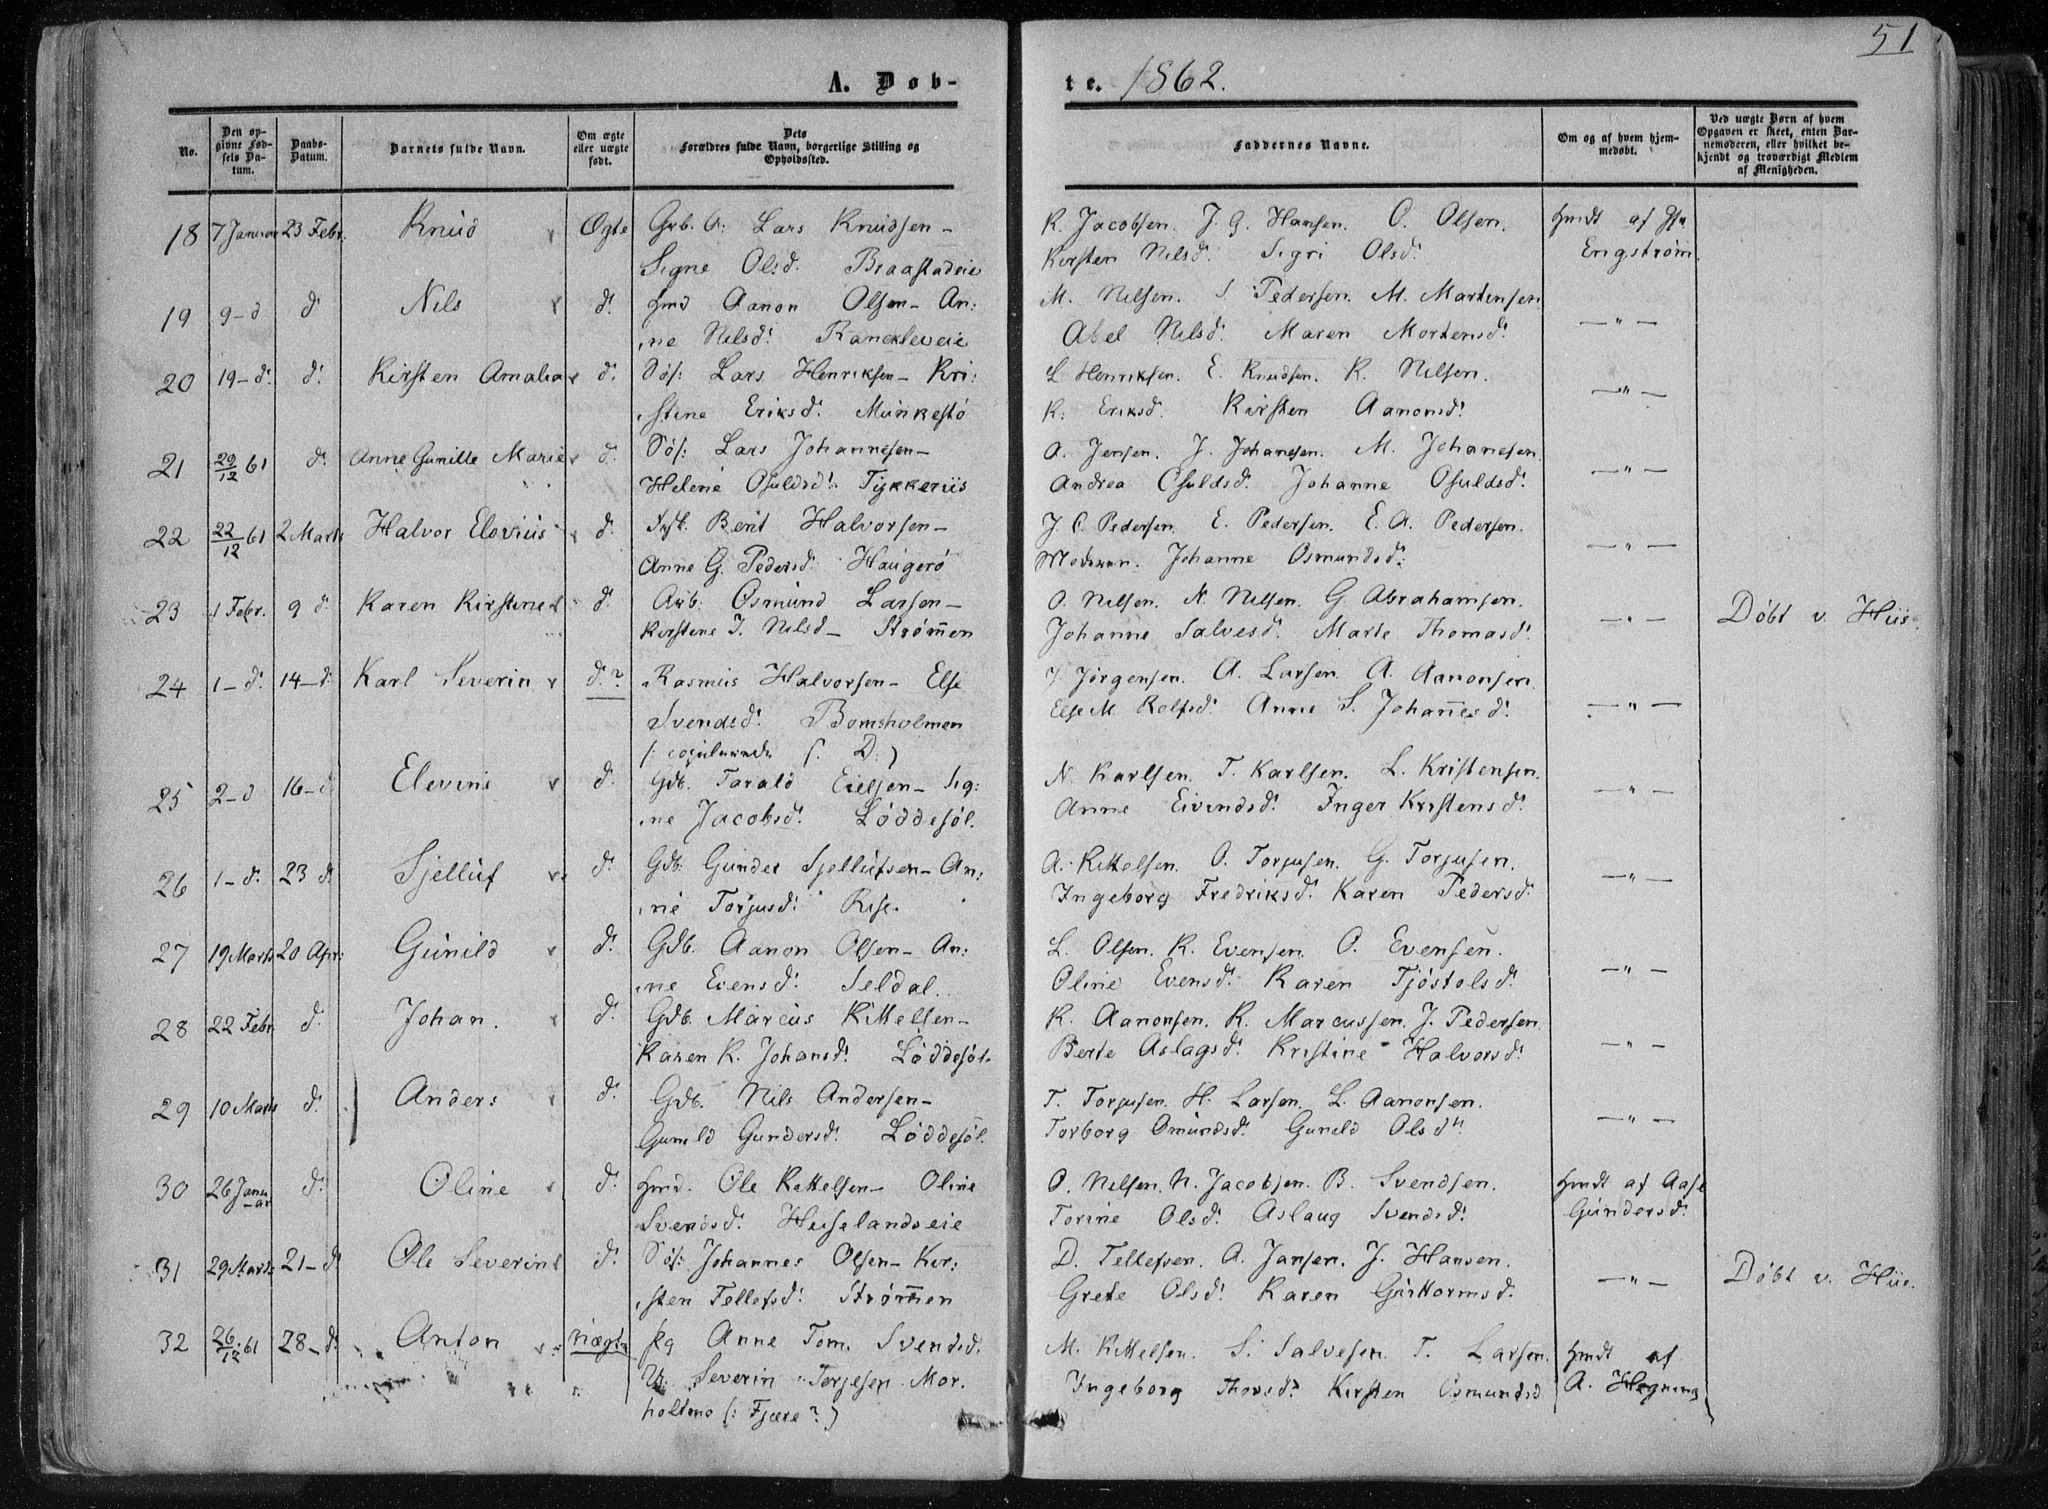 51
A. Døb-
te. 1862.
No.
Den op-
givne Fød-
sels Da-
tum.
Daabs-
Datum.
Barnets fulde Navn.
Om ægte
eller uægte
født.
Dets
Forældres fulde Navn, borgerlige Stilling og
Opholdssted.
Faddernes Navne.
Om og af hvem hjem-
medøbt.
Ved uægte Børn af hvem
Opgaven er skeet, enten Bar-
nemoderen, eller hvilket be-
kjendt og troværdigt Medlem
af Menigheden.
18 7 Januar 23 Febr. Knud Ægte Lars Knudsen – K. Jacobsen. J. G. Hansen. O. Olsen. hmdt af
Signe Olsd. Braastadeie Kirsten Nilsd. Sigri Olsd. Engstrøm
19 9–d d. Nils d. Hmd Aanon Olsen – An: M. Nilsen. S. Pedersen. M. Martinsen. —"—
ne Nilsd. Ranckleveie Abel Nilsd. Maren Mortensd.
20 19–d. d. Kirsten Amalia d. Søf: Lars Henriksen – Kri: L Henriksen. E. Knudsen. K. Nilsen. —"—
stine Eriksd. Munkestø K. Eriksd. Kirsten Aanonsd.
21 29/12 61 d. Anne Gunille Marie d. Søf: Lars Johannesen – A. Jensen. J. Johanesen. M. Johanesen. —"—
Helene Osuldsd. Tykkeriis Andrea Osuldsd. Johanne Osuldsd.
22 22/12 61 2 Marts Halvor Elovius d. Berit Halvorsen – J. C. Pedersen. E. Pedersen. E. A. Pedersen. —"—
Anne G. Pedersd. Haugerø Moderen. Johanne Osmundsd.
23 1 Febr. 9 d. Karen Kirstine d. Arb: Osmund Larsen – O. Nilsen. N. Nilsen. G. Abrahamsen. —"— Døbt v. His
Kirstine J. Nilsd – Strømen Johanne Salvesd. Marte Thomasd.
24 1–d. 14–d. Karl Severin d.? Rasmus Halvorsen – Else J. Jørgensen. A. Larsen. A. Aanonsen. —"—
Svendsd. Bomsholmen Else M. Rolfsd. Anne S. Johanesd.
25 2–d 16–d. Elevine d. Gdb. Tarald Eielsen – Sig: N. Karlsen. T. Karlsen. L. Kristensen. —"—
ne Jacobsd. Løddesøl. Anne Eivindsd. Inger Kristensd.
26 1–d. 23 d. Sjelluf d. Gdb. Gunder Sjellufsen – An: A. Kittelsen. O. Torjusen. G. Torjusen. —"—
ne Torjusd. Rise. Ingeborg Fredriksd. Karen Pedersd.
27 19 Marts 20 Apr: Gunild d. Gdb. Aanon Olsen – An: L. Olsen. K. Evensen. O. Evensen. —"—
ne Evensd. Seldal. Oline Evensd. Karen Tjøstolsd.
28 22 Febr d. Johan. d. Gdb. Marcus Kittelsen – K. Aanonsen. K. Marcussen. J. Pedersen. —"—
Karen K. Johansd. Løddesøl. Berte Aslagsd. Kristine Halvorsd.
29 10 Marts d. Anders d. Gdb. Nils Andersen – T. Torjusen. H. Larsen. L. Aanonsen. —"—
Gunild Gundersd. Løddesøl. Torborg Omundsd. Gunild Olsd.
30 26 Janu- d. Oline d. Hmd. Ole Kittelsen – Oline O. Nilsen. N. Jacobsen. B. Svendsen. hmdt af Aase
ar Svendsd. Huselandseie Torine Olsd. Aslaug Svendsd. Gundersd.
31 29 Marts 21–d Ole Severin d. Søf: Johannes Olsen – Kir: D. Tellefsen. A. Jansen. J. Hansen. —"— Døbt v. His.
sten Tellefsd. Strømen Grete Olsd. Karen Guttormsd.
32 26/12 61 28–d. Anton uægte pg Anne Tom. Svendsd. M. Kittelsen. S. Salvesen. T. Larsen. hmdt af
Severin Terjesen Mor. Ingeborg Thorsd. Kirsten Osmundsd A. Hegning
holtmo (: Fjære? )